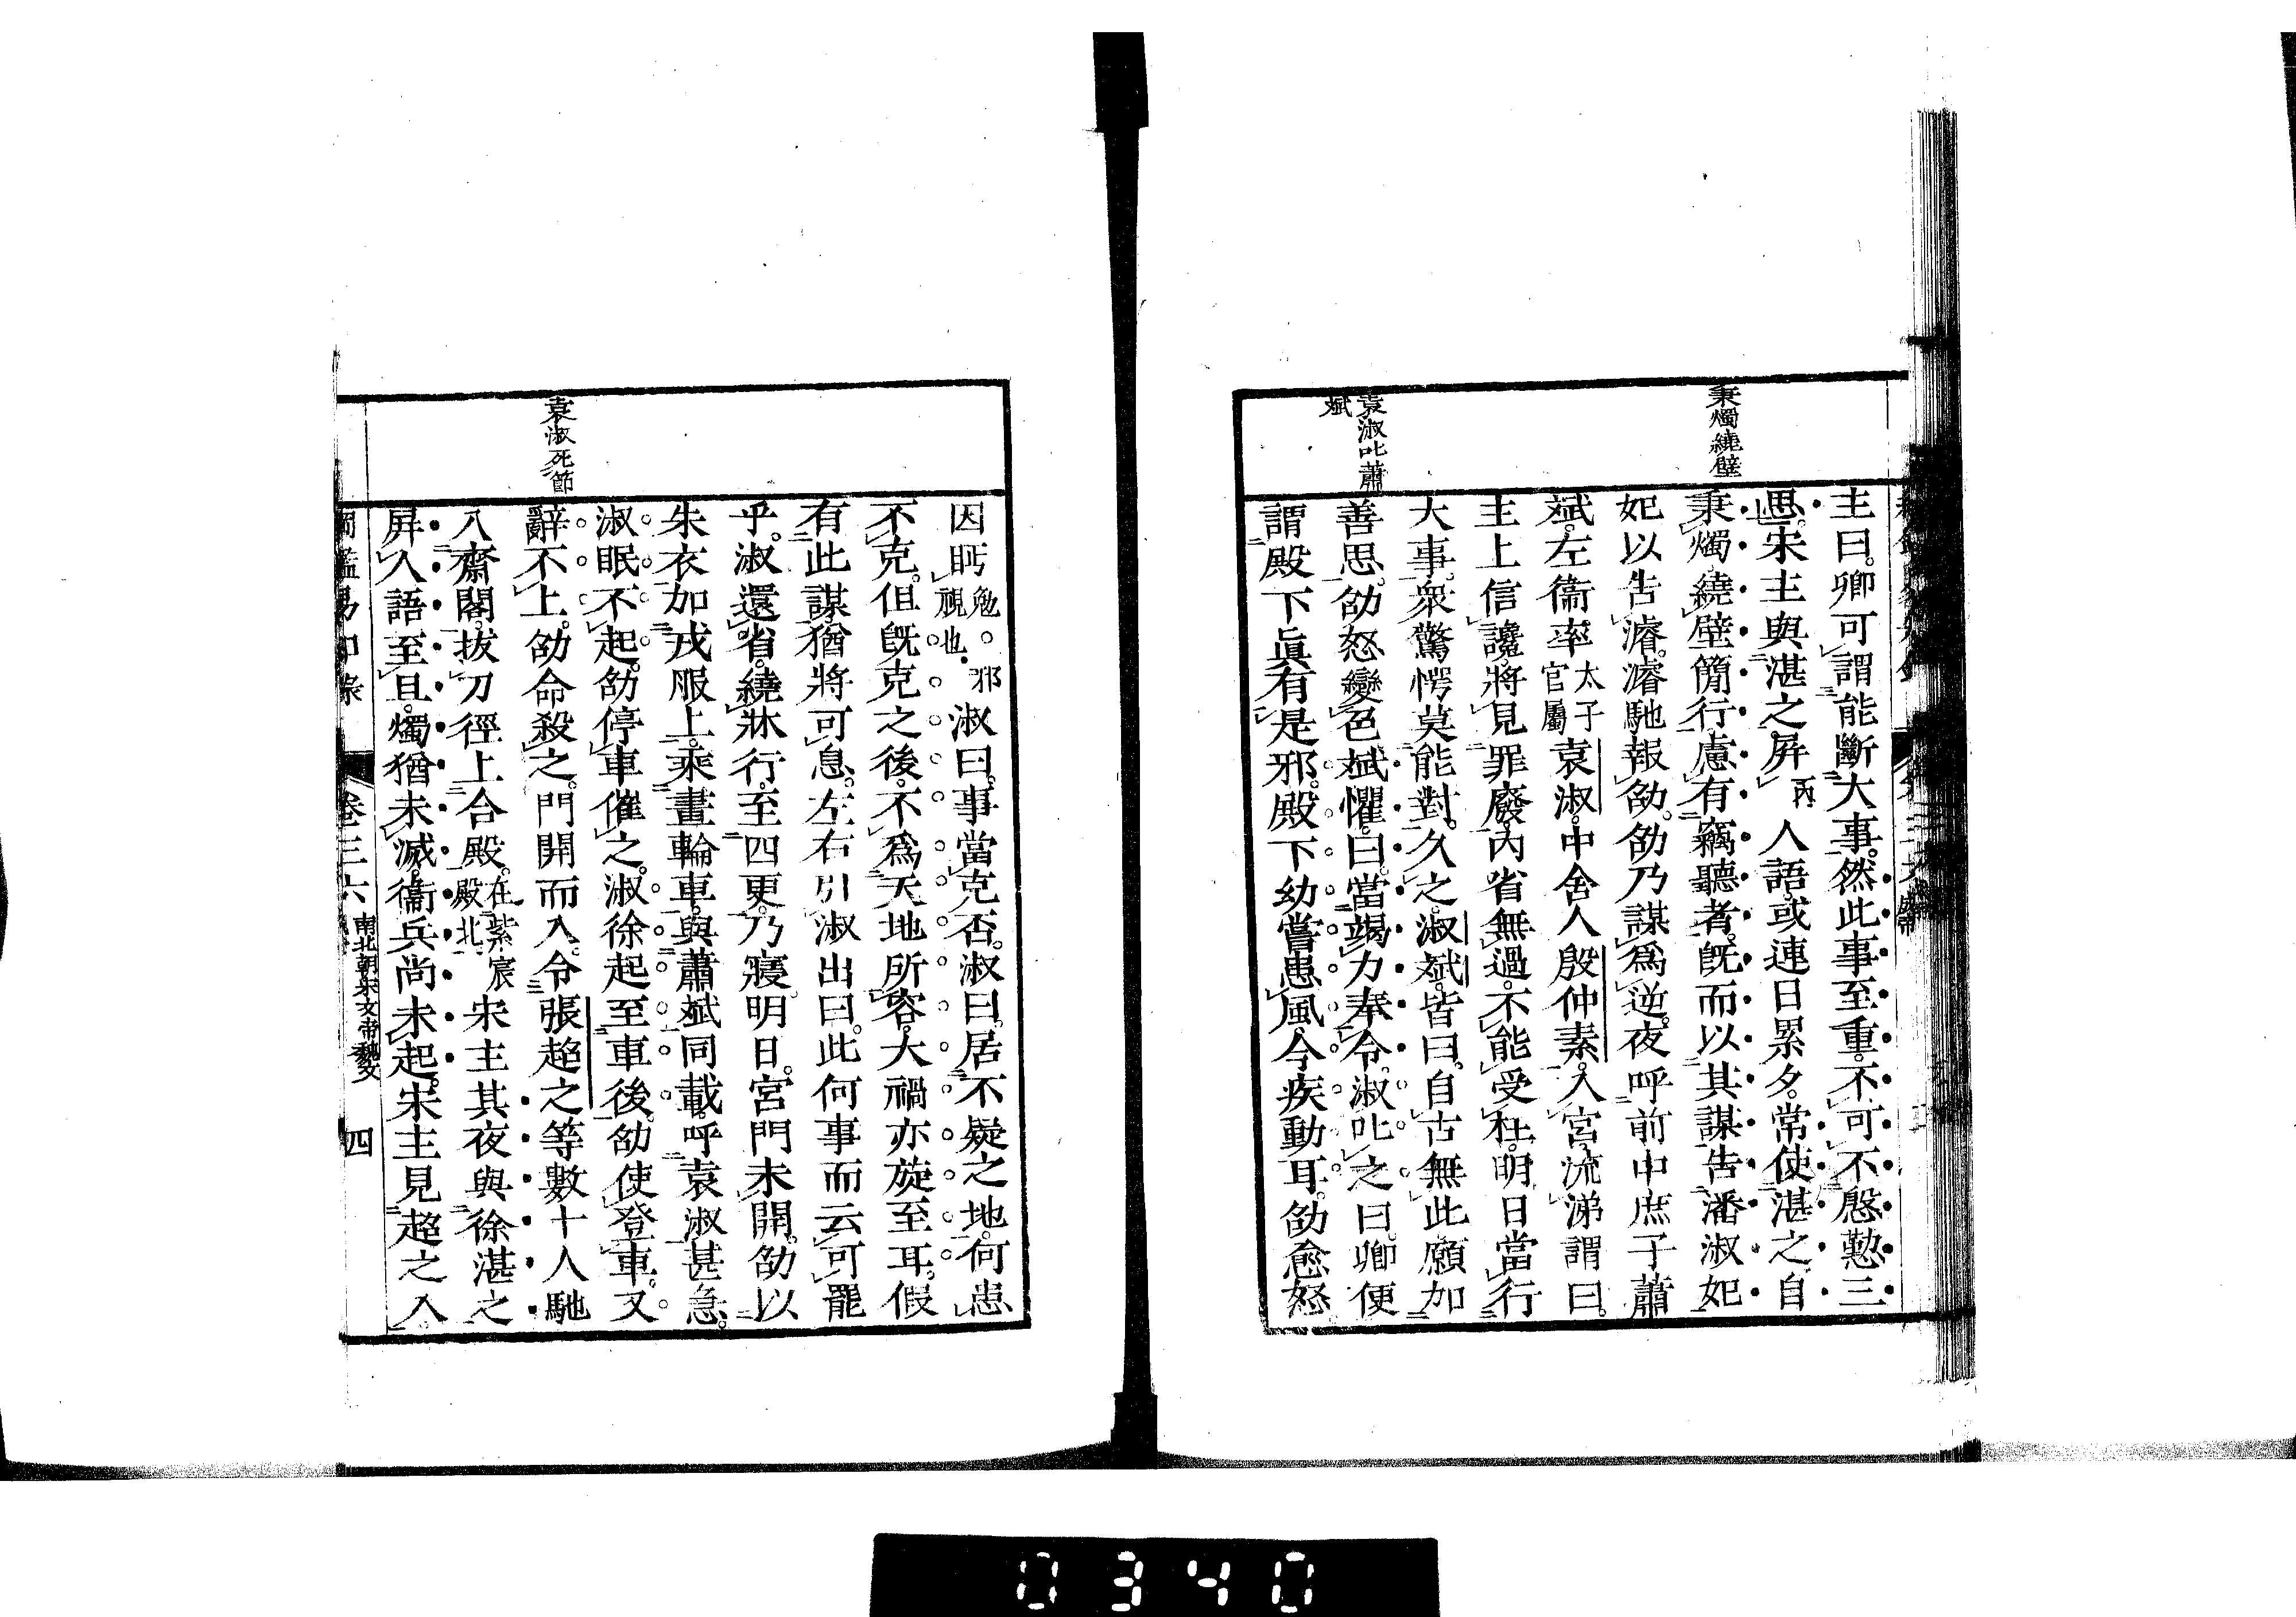 秉燭繞壁
袁淑叱蕭
斌
主曰。卿可謂能斷大事。然此事至重。不可不慇懃三
思。宋主與湛之。屏丙人語。或連日累夕。常使湛之自
秉燭。繞壁簡行。慮有竊聽者。旣而以其謀告潘淑妃
妃以告濬。濬馳報劭。劭乃謀爲逆。夜呼前中庶子蕭
斌。左衞率太子官屬袁淑。中舍人殷仲素。入宮。流涕謂曰。
主上信讒。將見罪廢。內省無過。不能受枉。明日當行
大事。衆驚愕莫能對。久之。淑斌。皆曰。自古無此。願加
善思。劭怒變色。斌懼。曰。當竭力奉令。淑叱之曰。卿便
謂殿下眞有是邪。殿下幼嘗患風。今疾動耳。劭愈怒
袁淑死節
因眄勉。邪視也。淑曰。事當克否。淑曰。居不疑之地。何患
不克。但旣克之後。不爲天地所容。大禍亦旋至耳。假
有此謀。猶將可息。左右引淑出曰。此何事而云可罷
乎。淑還省。繞牀行。至四更。乃寢。明日。宮門未開。劭以
朱衣加戎服上。乘畫輪車。與蕭斌同載。呼袁淑甚急。
淑眠不起。劭停車催之。淑徐起至車後。劭使登車。又
辭不上。劭命殺之。門開而入。令張超之等數十人馳
入齋閤。拔刀徑上合殿。在紫宸殿北宋主其夜與徐湛之
屏人語至旦。燭猶未滅。衞兵尚未起。宋主見超之入
綱鑑易知錄 卷三六 南北朝宋文帝魏文 四
0340